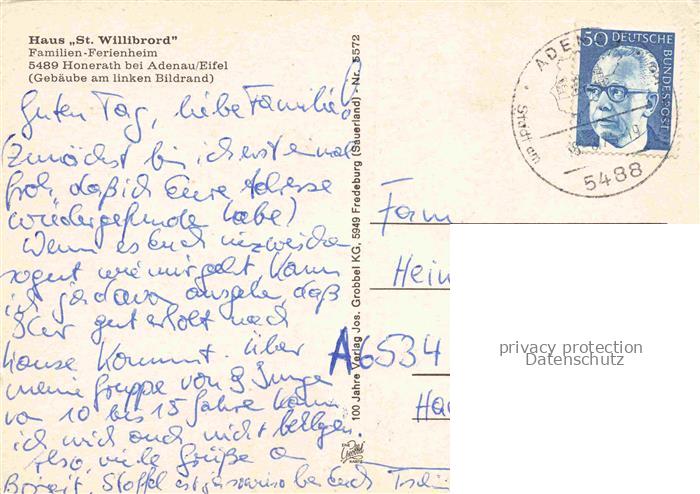 Haus „St. Willibrord"
Familien-Ferienheim
5489 Honerath bei Adenau/Eifel
(Gebäube am linken Bildrand)
Guten Tag, liebe Familie
(Zunächst bin ich erst einmal
froh, daß ich Eure Adresse
wiedergefunde habe)
Wenn es Euch inzwischen
sogut wie mir geht, kann
ich ja davon ausgehe, daß
Ihr gut erholt nach
hause kommt. Über
meine Gruppe von 9 Junge
von 10 bis 15 Jahre kann
ich mich auch nicht beklagen.
Also, viele Grüße an
Birgit, Stoffel ist ja sowieso bei Euch
Tschü
100 Jahre Verlag Jos. Grobbel KG, 5949 Fredeburg (Sauerland) - Nr. 5572
50 DEUTSCHE BUNDESPOST
ADEN
5488
Fam
Hein
A6534
Ha
privacy protection
Datenschutz